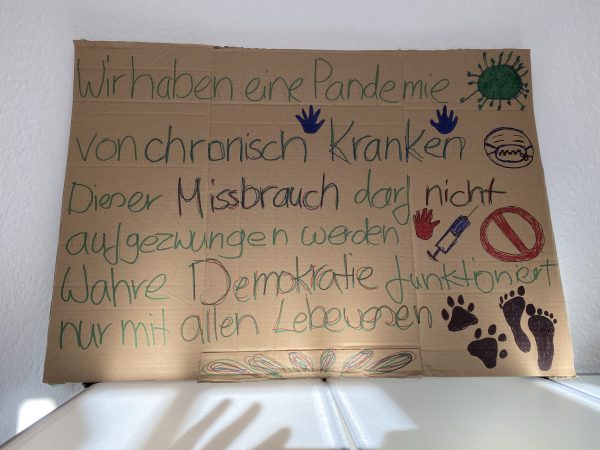 Wir haben eine Pandemie
von chronisch Kranken
Dieser Missbrauch darf nicht
aufgezwungen werden
Wahre Demokratie funktioniert
nur mit allen Lebewesen